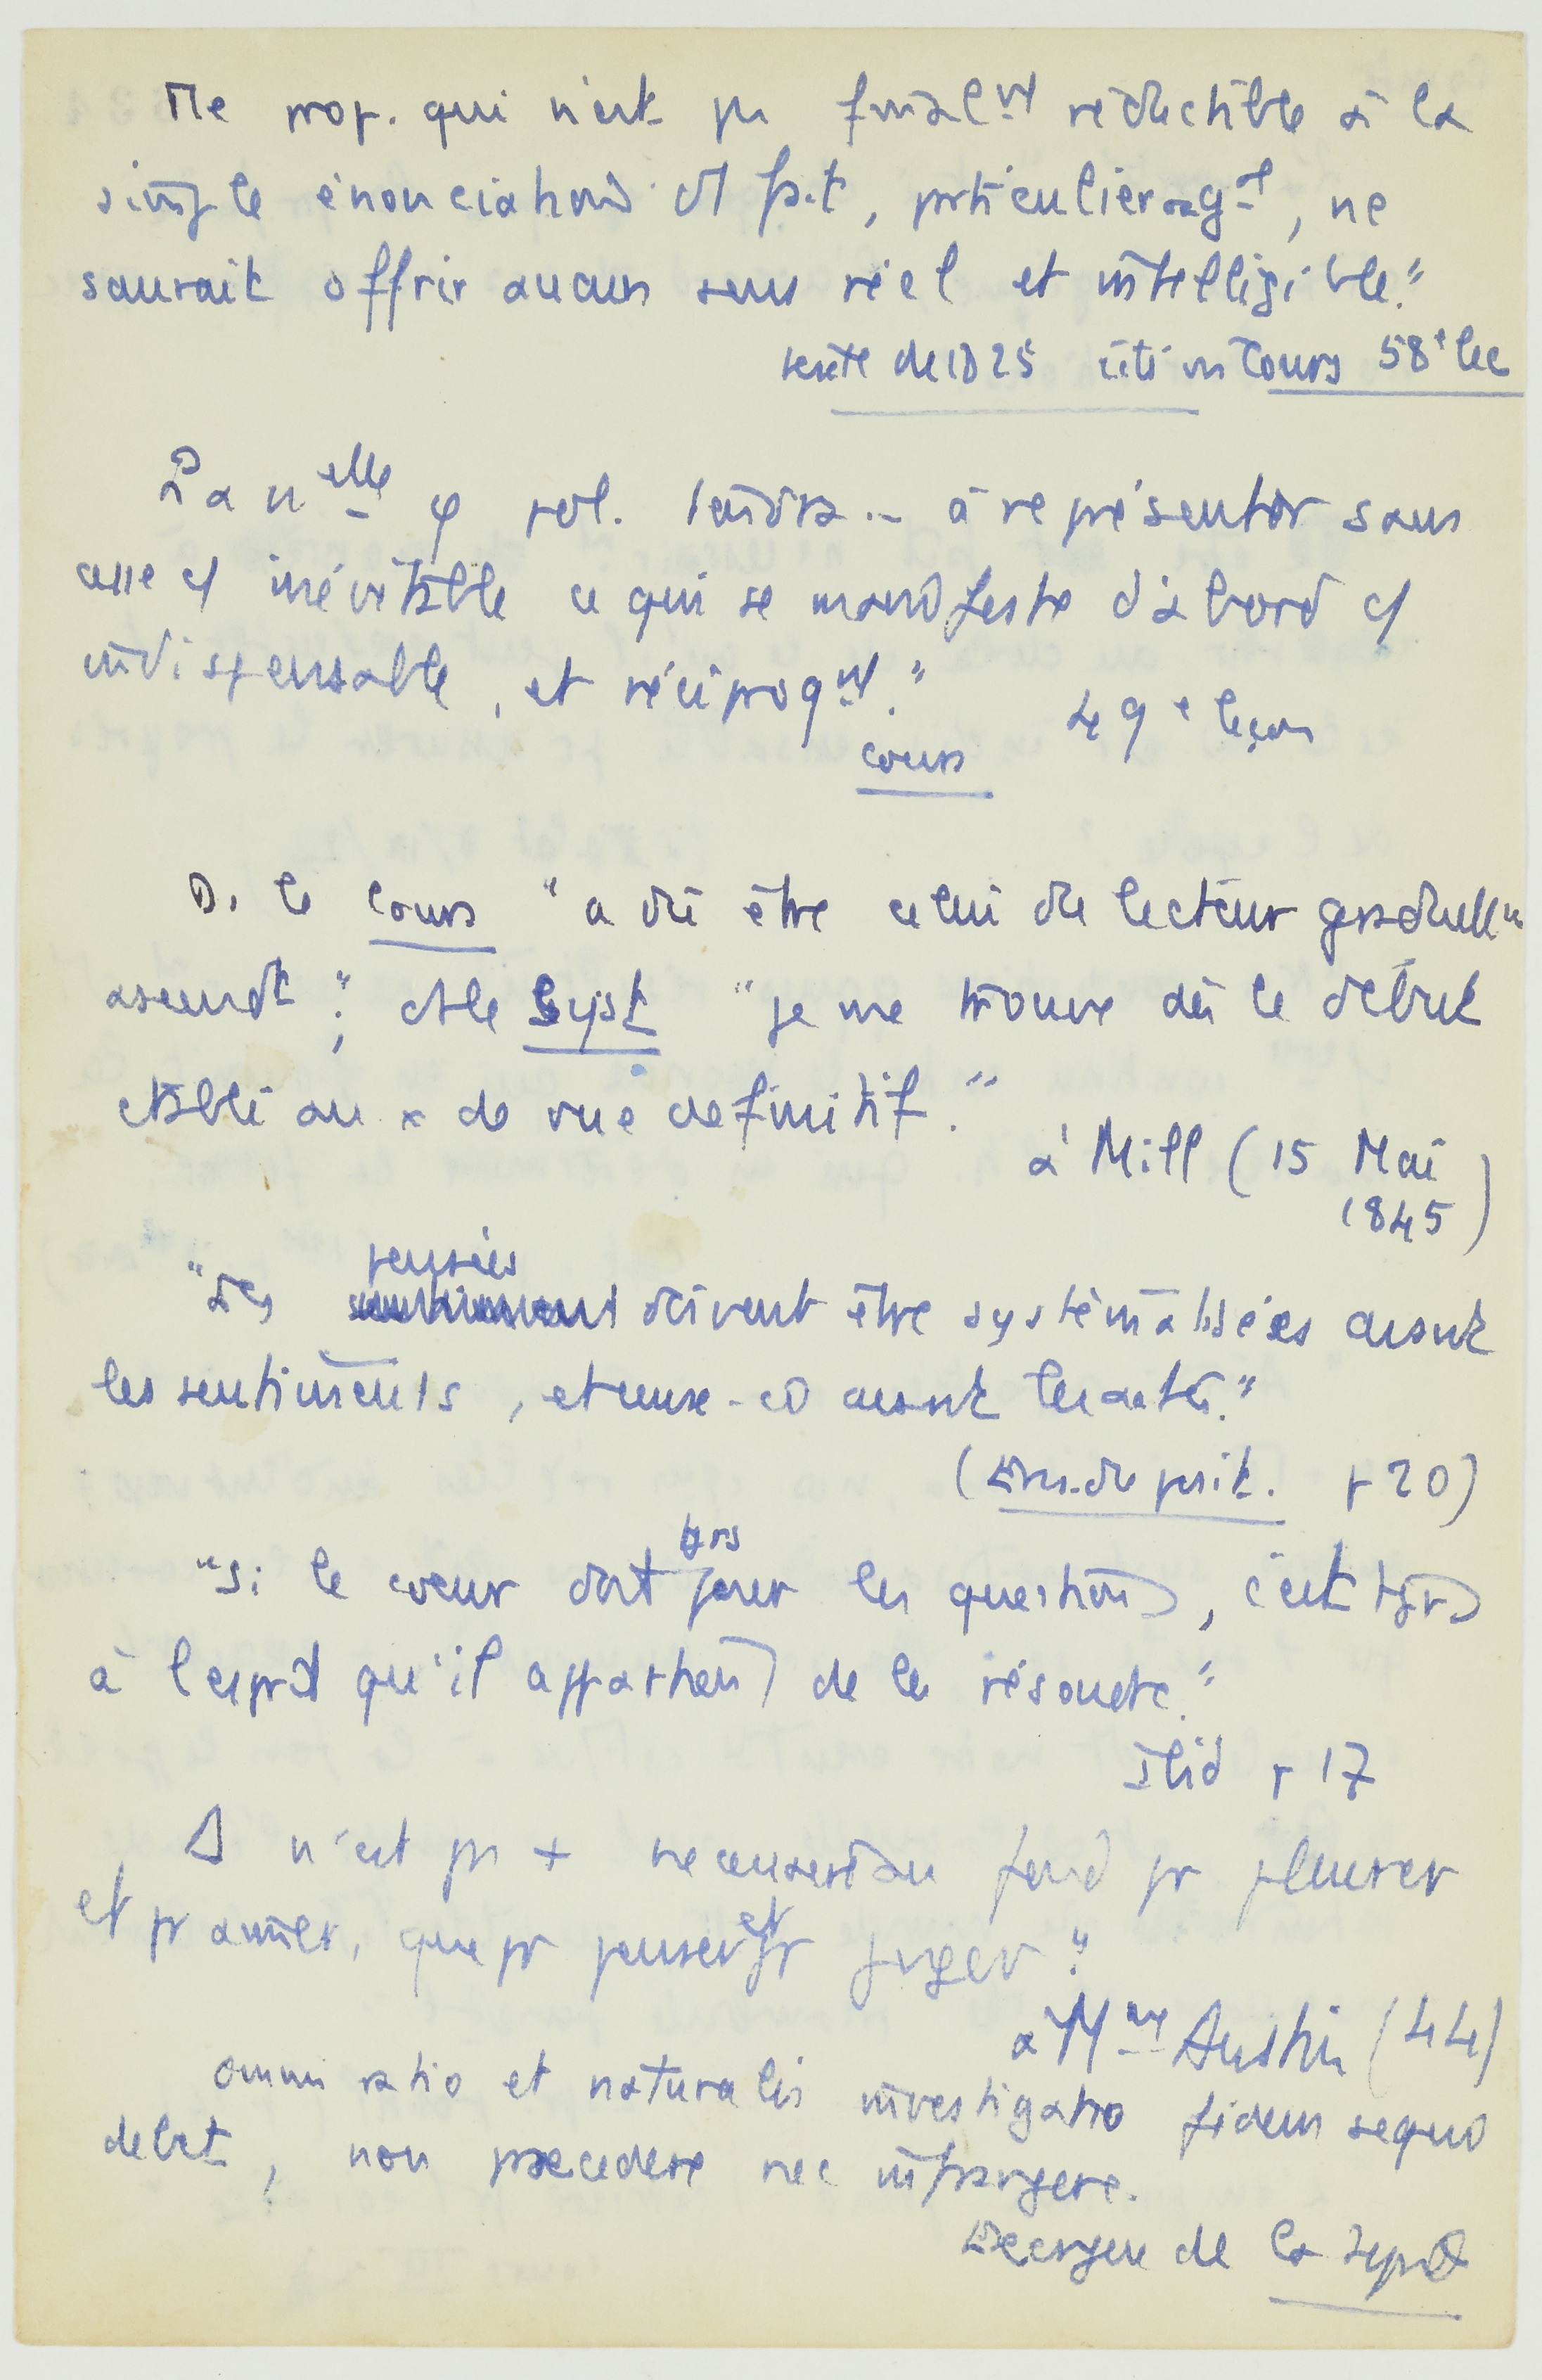 Tte prop. qui n'est pas final<sup>nt</sup> réductible à la
simple énonciation d'1 fait, particulier ou g<sup>al</sup>, ne
saurait offrir aucun sens réel et intelligible."
texte de 1825 cité in Cours 58<sup>e</sup> lec
La n<sup>elle</sup> φ pol. tendra .. à représenter sans
cesse c/ inévitable ce qui se manifeste d'abord c/
indispensable, et réciproq<sup>nt</sup>."
Cours 49<sup>e</sup> leçon
Ds le Cours "a dû être celui du lecteur graduell<sup>nt</sup>
ascendt"; ds le Syst "je me trouve dès le début
établi au x de vue définitif."
à Mill (15 Mai
1845)
pensées
"Les doivent être systématisées avant
les sentiments, et ceux-ci avant les actes."
(Disc. du posit. p 20)
tjrs
"Si le coeur doit poser les questions, c'est tjrs
à l'esprit qu'il appartient de les résoudre."
Ibid p 17
Δ n'est pas + nécessaire au fond pr pleurer
et pr aimer, que pr penser et pr juger."
à M<sup>me</sup> Austin (44)
omnis ratio et naturalis investigatio fidem sequi
debet, non praecedere nec infringere.
de la